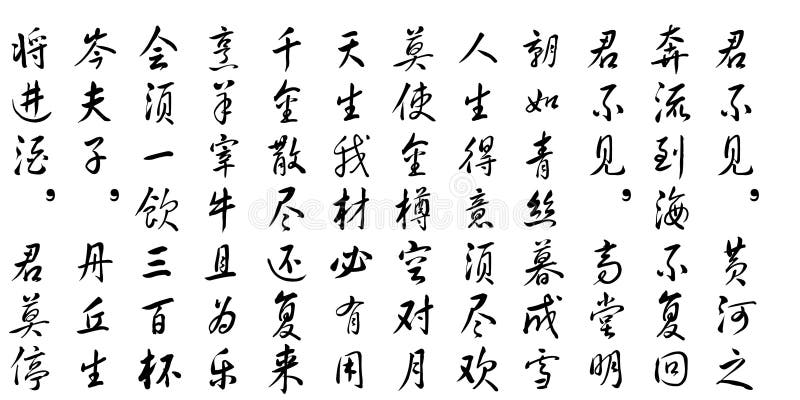 君不见，黄河之
奔流到海不复回
君不见，高堂明
朝如青丝暮成雪
人生得意须尽欢
莫使金樽空对月
天生我材必有用
千金散尽还复来
烹羊宰牛且为乐
会须一饮三百杯
岑夫子，丹丘生
将进酒，君莫停
dreamstime